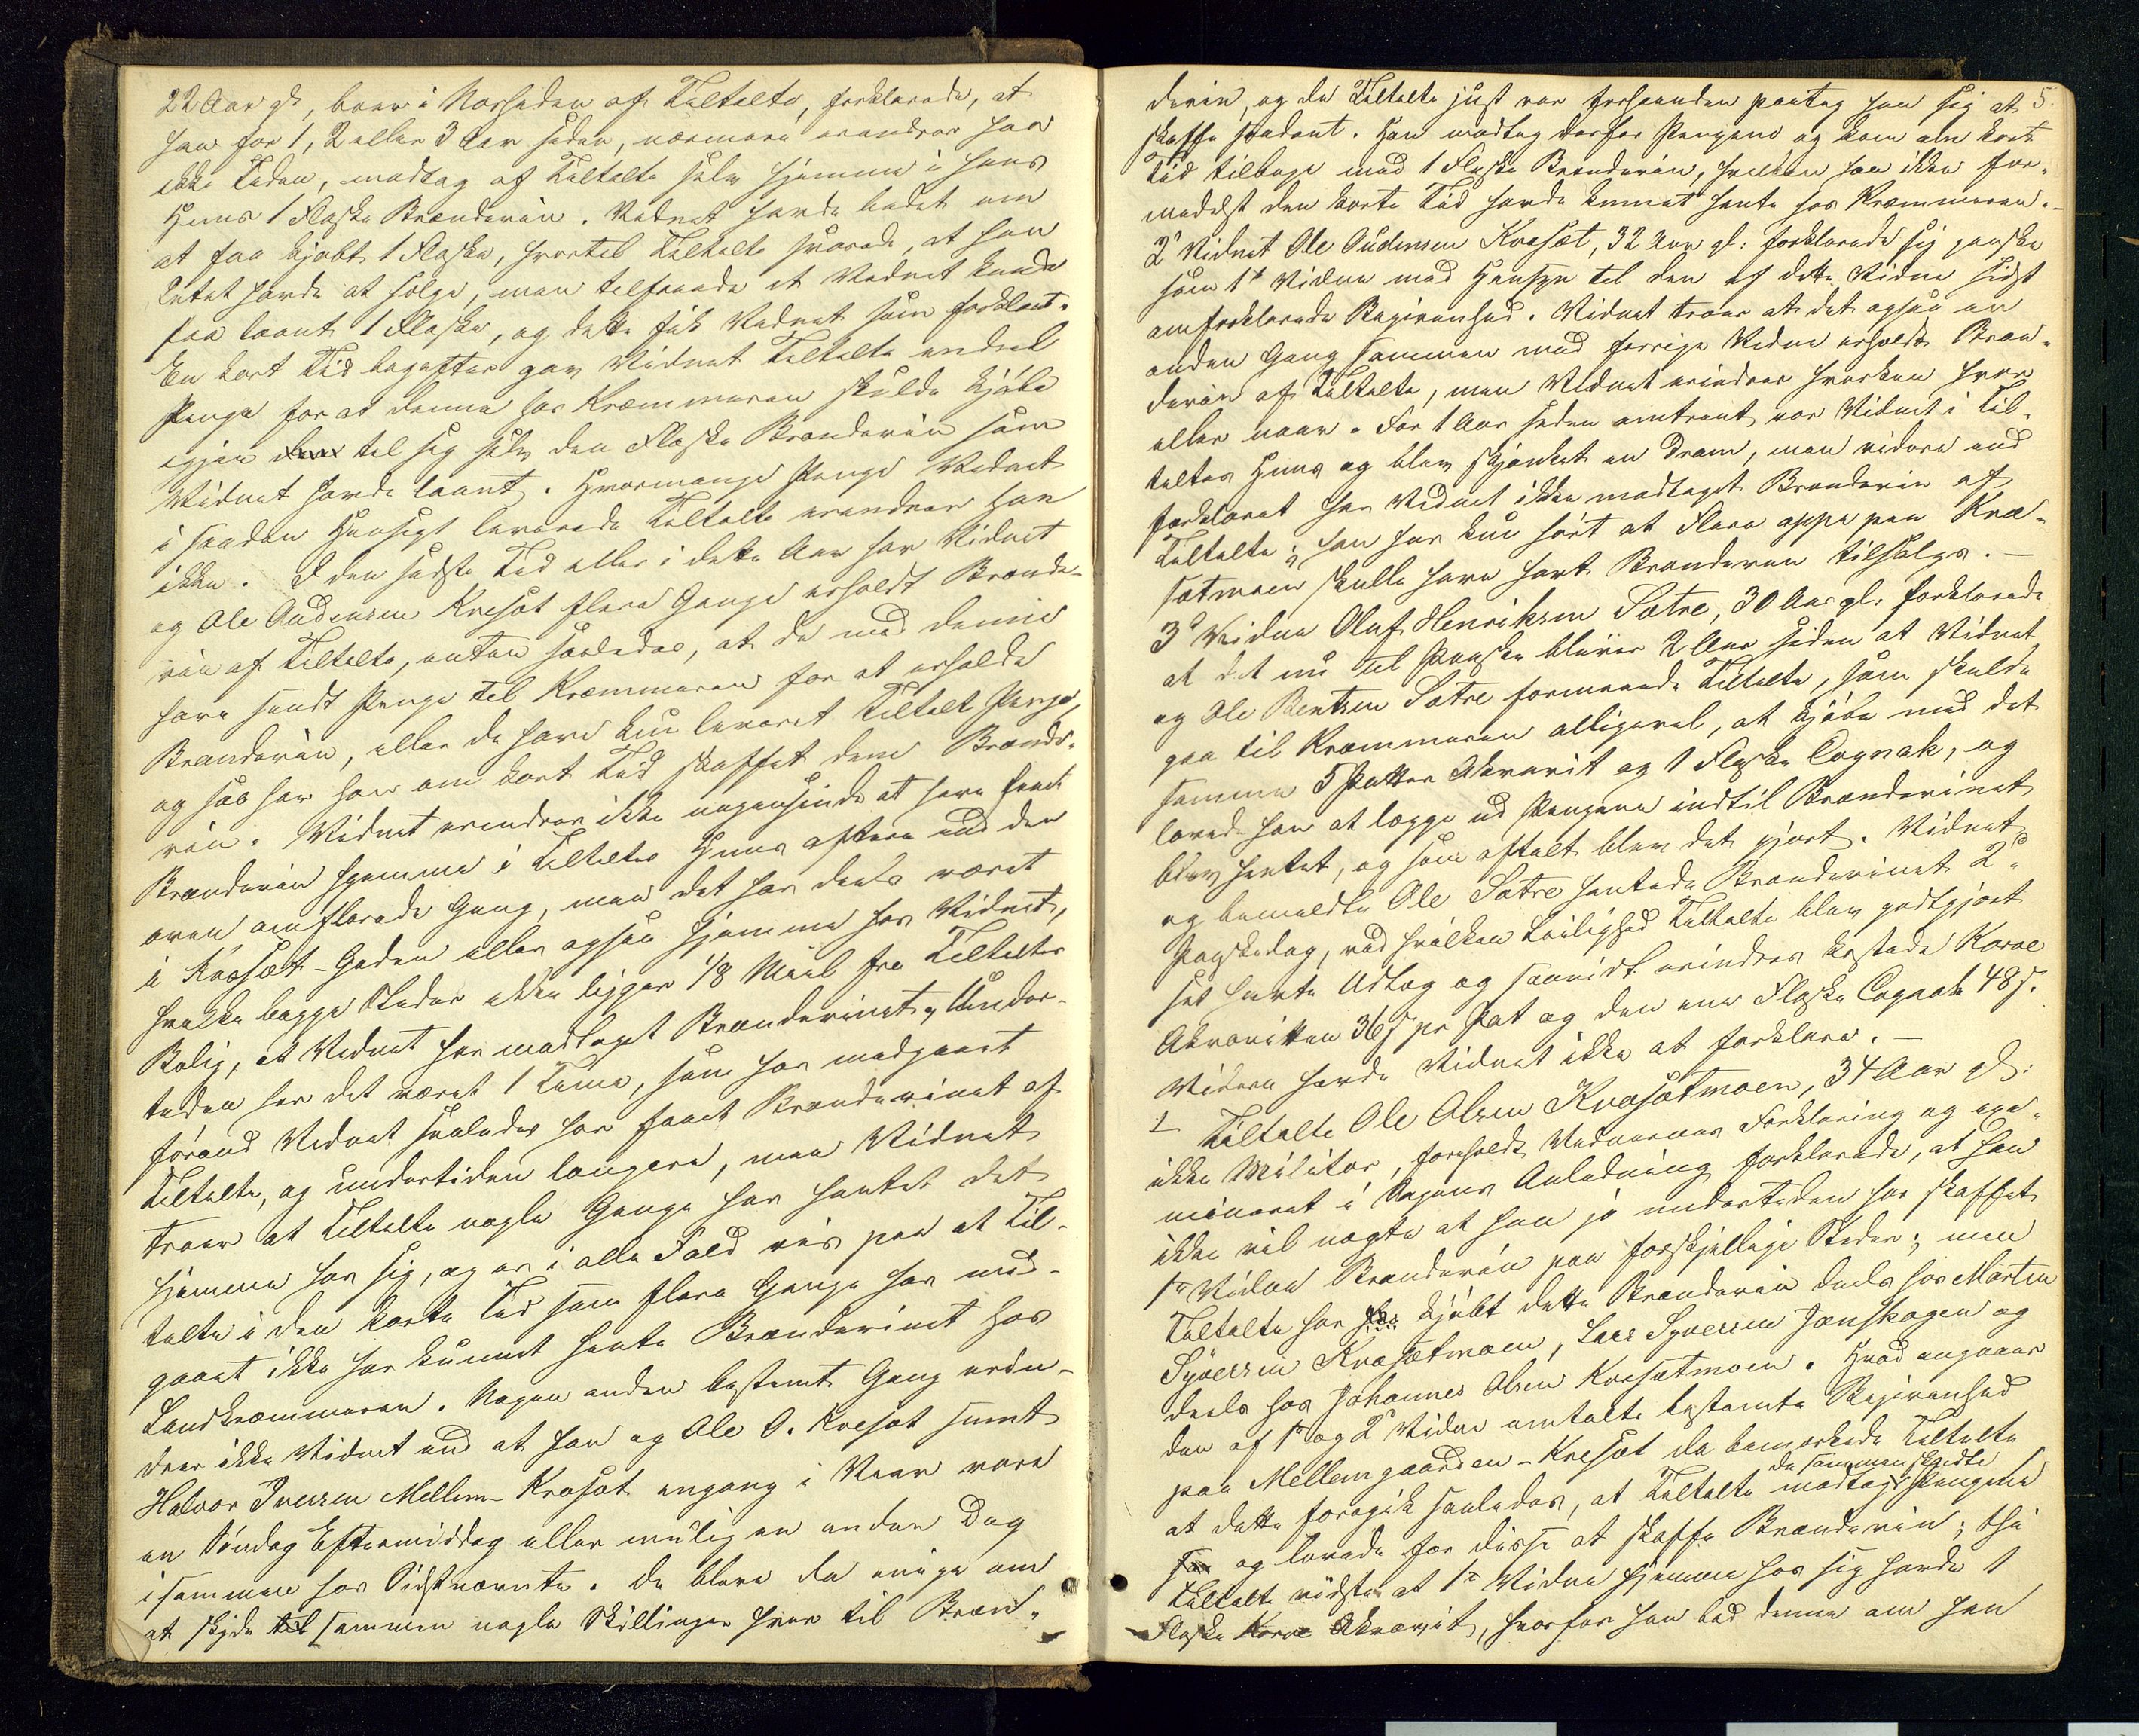 22 Aar gl, boer i Nærheden af Tiltalte, forklarede, at
han for 1, 2 eller 3 Aar siden, nærmere erindrer han
ikke Tiden, modtog af Tiltalte selv hjemme i hans
Huus 1 Flaske Brændeviin. Vidnet havde bedet om
at faa kjøbt 1 Flaske, hvortil Tiltalte svarede, at han
Intet havde at sælge, men tilføiede at Vidnet kunde
faa laant 1 Flaske, og dette fik Vidnet som forklaret.
En kort Tid derefter gav Vidnet Tiltalte endeel
Penge for at denne hos Kræmmeren skulde kjøbe
igjen til sig selv den Flaske Brændeviin som
Vidnet havde laant. Hvormange Penge Vidnet
i saadan Hensigt leverede Tiltalte erindrer han
ikke. I den sidste Tid eller i dette Aar har Vidnet
og Ole Audensen Kresæt flere Gange erholdt Brænde-
viin af Tiltalte, enten saaledes, at de med denne
have sendt Penge til Kræmmeren for at erholde
Brændeviin, eller de have kun leveret Tiltalt Penge,
og saa har han om kort Tid skaffet dem Brænde-
viin. Vidnet erindrer ikke nogensinde at have faaet
Brændeviin hjemme i Tiltaltes Huus oftere end den
oven omklarede Gang, men det har deels været
i Kresæt-Gaden eller ogsaa hjemme hos Vidnet,
hvilke begge Steder ikke ligger 1/8 Miil fra Tiltaltes
Bolig, at Vidnet har modtaget Brændevinet. Under-
tiden har det været 1 Time, som har medgaaet
førend Vidnet saaledes har faaet Brændevinet af
Tiltalte, og undertiden længere, men Vidnet
troer at Tiltalte nogle Gange har hentet det
hjemme hos sig, og er i alle Fald vis paa at Til-
talte i den korte Tid som flere Gange har med-
gaaet ikke har kunnet hente Brændevinet hos
Landkræmmeren. Nogen anden bestemt Gang erin-
drer ikke Vidnet end at han og Ole A. Kresæt samt
Halvor Iversen Mellem-Kresæt engang i Vaar vare
en Søndag Eftermiddag eller mulig en anden Dag
isammen hos Sidstnævnte. De bleve da enige om
at skyde til sammen nogle Skillinger hver til Bræn-
5
deviin, og da Tiltalte just var forhaanden paatog han sig at
skaffe saadant. Han modtog derfor Pengene og kom om kort
Tid tilbage med 1 Flaske Brændeviin, hvilken han ikke for-
medelst den korte Tid havde kunnet hente hos Kræmmeren.
2det Vidnet Ole Audensen Kresæt, 32 Aar gl: forklarede sig ganske
som 1ste Vidne med Hensyn til den af dette Vidne sidst
omforklarede Begivenhed. Vidnet troer at det ogsaa en
anden Gang sammen med forrige Vidne erholdt Bræn-
deviin af Tiltalte, men Vidnet erindrer hverken hvor
eller naar. For 1 Aar siden omtrent var Vidnet i Til-
taltes Huus og blev skjænket en Dram, men videre end
forklaret har Vidnet ikke modtaget Brændeviin af
Tiltalte; han har kun hørt at Flere oppe paa Kre-
sætmoen skulle have havt Brændeviin tilsalgs. —
3die Vidne Oluf Henriksen Sætre, 30 Aar gl: forklarede
at det nu til Paaske bliver 2 Aar siden at Vidnet
og Ole Bentsen Sætre formaaede Tiltalte, som skulde
gaa til Kræmmeren alligevel, at kjøbe med det
samme 5 Potter Akvavit og 1 Flaske Cognak, og
lovede han at lægge ud Pengene indtil Brændevinet
blev hentet, og som aftalt blev det gjort. Vidnet
og bemeldte Ole Sætre hentede Brændevinet 2den
Paaskedag, ved hvilken Leilighed Tiltalte blev godtgjort
sit havte Udlæg og saavidt erindres kostede Karve
Akvavitten 36 s pr Pot og den ene Flaske Cognak 48 s.
Videre havde Vidnet ikke at forklare. —
Tiltalte Ole Olsen Kresætmoen, 34 Aar gl:
ikke Militær, foreholdt Vidnernes Forklaring og exa-
mineret i Sagens Anledning forklarede, at han
ikke vil nægte at han jo undertiden har skaffet
1ste Vidne Brændeviin paa forskjellige Steder; men
Tiltalte har kjøbt dette Brændeviin deels hos Martin
Syversen Kresætmoen, Lars Syversen Jonskogen og
deels hos Johannes Olsen Kresætmoen. Hvad angaaer
den af 1ste og 2det Vidne omtalte bestemte Begivenhed
paa Mellemgaarden-Kresæt da bemærkede Tiltalte
at dette foregik saaledes, at Tiltalte modtog de sammenskudte Pengene
og lovede for disse at skaffe Brændeviin; thi
Tiltalte vidste at 1ste Vidne hjemme hos sig havde 1
Flaske Karve Akvavit, hvorfor han bad denne om han